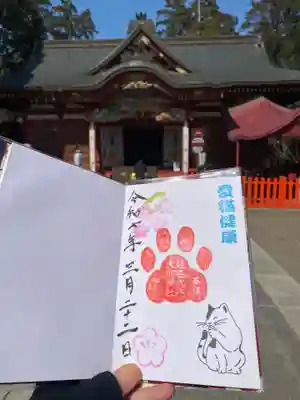 愛猫健康
令和七年三月二十二日